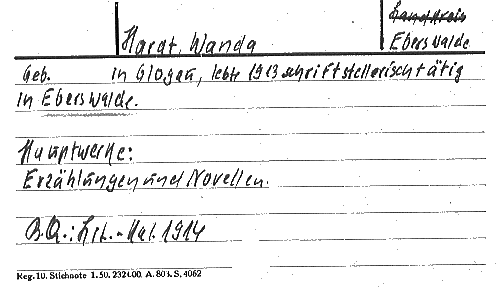 Landkreis
Hardt, Wanda
Eberswalde
Geb. in Glogau, lebte 1913 schriftstellerisch tätig
in Eberswalde.
Hauptwerke:
Erzählungen und Novellen.
B.Q.: Lit.-Kal. 1914
Reg. 10. Stichnote 1. 50. 232t.00. A. 803. S. 4062